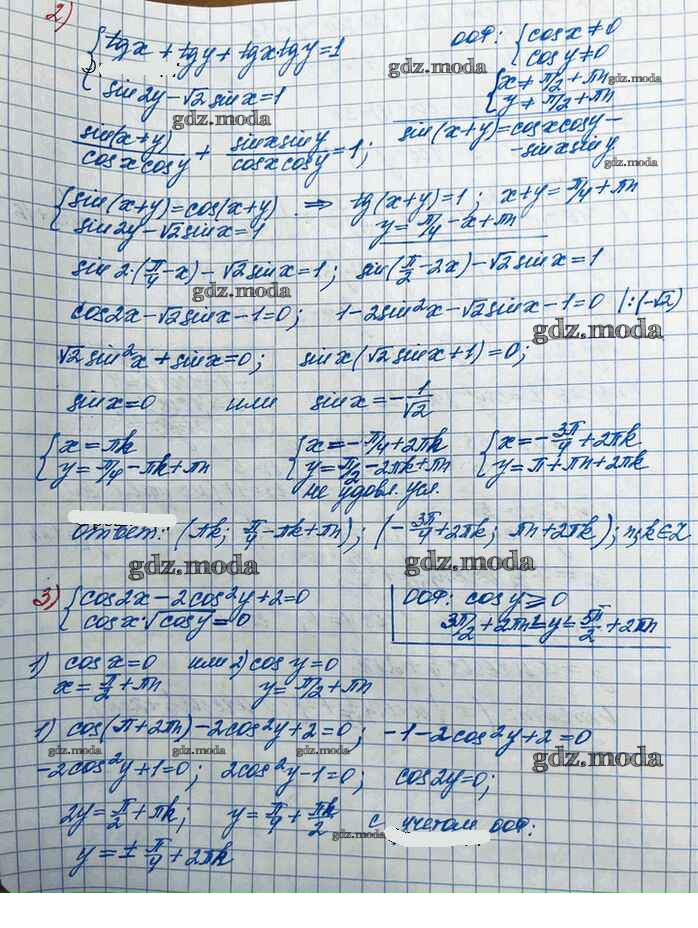 2)
{ tg x + tg y + tg x·tg y = 1
{ sin 2y - √2 sin x = 1
ООФ: { cos x ≠ 0
{ cos y ≠ 0
{ x ≠ π/2 + πn
{ y ≠ π/2 + πn
gdz.moda
gdz.moda
gdz.moda
sin(x+y)/(cos x cos y) + (sin x sin y)/(cos x cos y) = 1;
sin(x+y) = cos x cos y -
- sin x sin y
gdz.moda
{ sin(x+y) = cos(x+y) ⇒ tg(x+y) = 1; x+y = π/4 + πn
{ sin 2y - √2 sin x = 1
y = π/4 - x + πn
sin 2·(π/4 - x) - √2 sin x = 1; sin(π/2 - 2x) - √2 sin x = 1
gdz.moda
cos 2x - √2 sin x - 1 = 0; 1 - 2sin²x - √2 sin x - 1 = 0 |:(-√2)
gdz.moda
√2 sin²x + sin x = 0; sin x(√2 sin x + 1) = 0;
sin x = 0 или sin x = -1/√2
{ x = πk
{ y = π/4 - πk + πn
{ x = -π/4 + 2πk
{ y = π/2 - 2πk + πn
не удовл. усл.
{ x = -3π/4 + 2πk
{ y = π + πn + 2πk
ответ: (πk; π/4 - πk + πn); (-3π/4 + 2πk; πn + 2πk); n, k ∈ Z
gdz.moda
gdz.moda
3) { cos 2x - 2cos²y + 2 = 0
{ cos x·√cos y = 0
ООФ: cos y ≥ 0
3π/2 + 2πn ≤ y ≤ 5π/2 + 2πn
1) cos x = 0 или 2) cos y = 0
x = π/2 + πn
y = π/2 + πn
1) cos(π + 2πn) - 2cos²y + 2 = 0; -1 - 2cos²y + 2 = 0
gdz.moda
gdz.moda
gdz.moda
gdz.moda
-2cos²y + 1 = 0; 2cos²y - 1 = 0; cos 2y = 0;
2y = π/2 + πk; y = π/4 + πk/2 с учетом ООФ:
gdz.moda
y = ± π/4 + 2πk